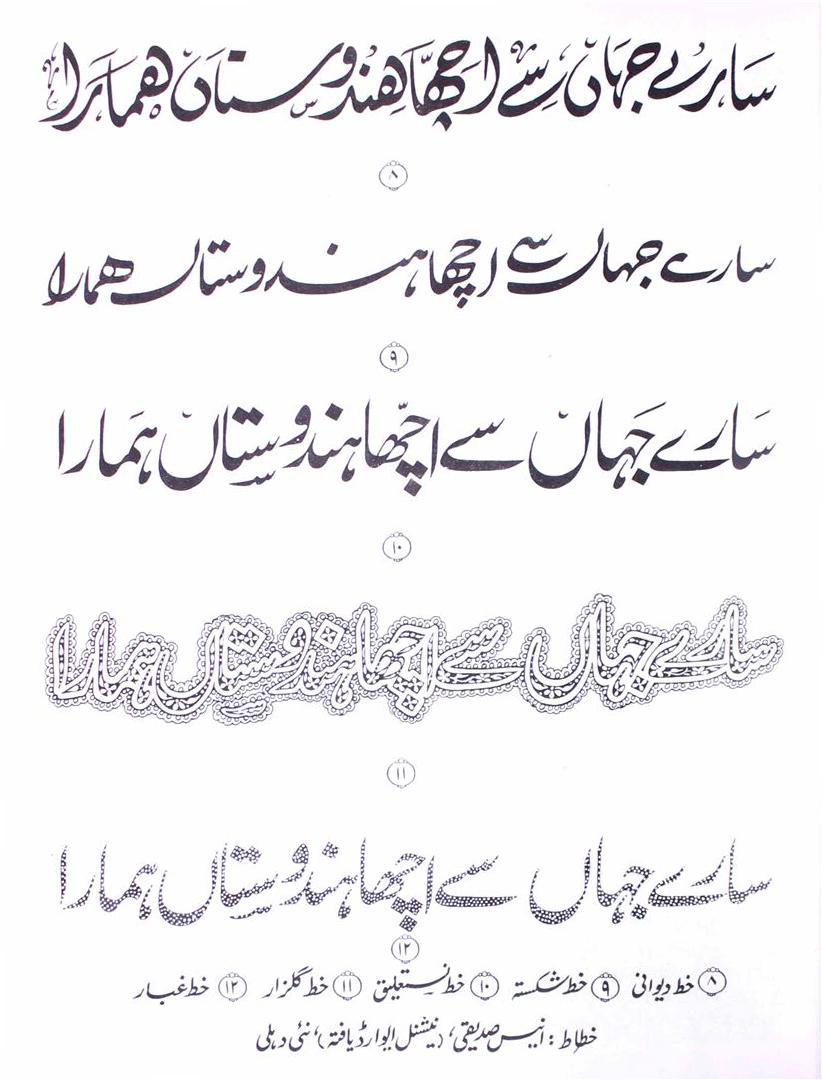 سارے جہاں سے اچھا ہندوستاں ہمارا
۸
سارے جہاں سے اچھا ہندوستاں ہمارا
۹
سارے جہاں سے اچّھا ہندوستاں ہمارا
۱۰
سارے جہاں سے اچھا ہندوستاں ہمارا
۱۱
سارے جہاں سے اچھا ہندوستاں ہمارا
۱۲
۸ خط دیوانی ۹ خط شکستہ ۱۰ خط نستعلیق ۱۱ خط گلزار ۱۲ خط غبار
خطاط : انیس صدیقی، (نیشنل ایوارڈ یافتہ)، نئی دہلی